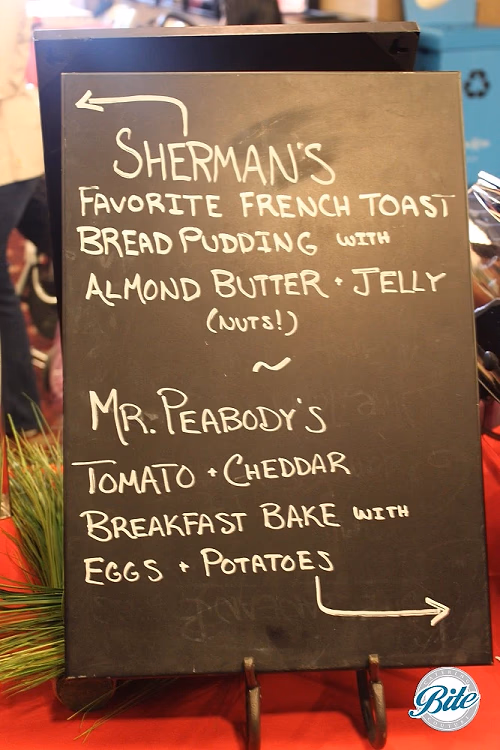 SHERMAN'S
FAVORITE FRENCH TOAST
BREAD PUDDING WITH
ALMOND BUTTER + JELLY
(NUTS!)
~
MR. PEABODY'S
TOMATO + CHEDDAR
BREAKFAST BAKE WITH
EGGS + POTATOES
Bite